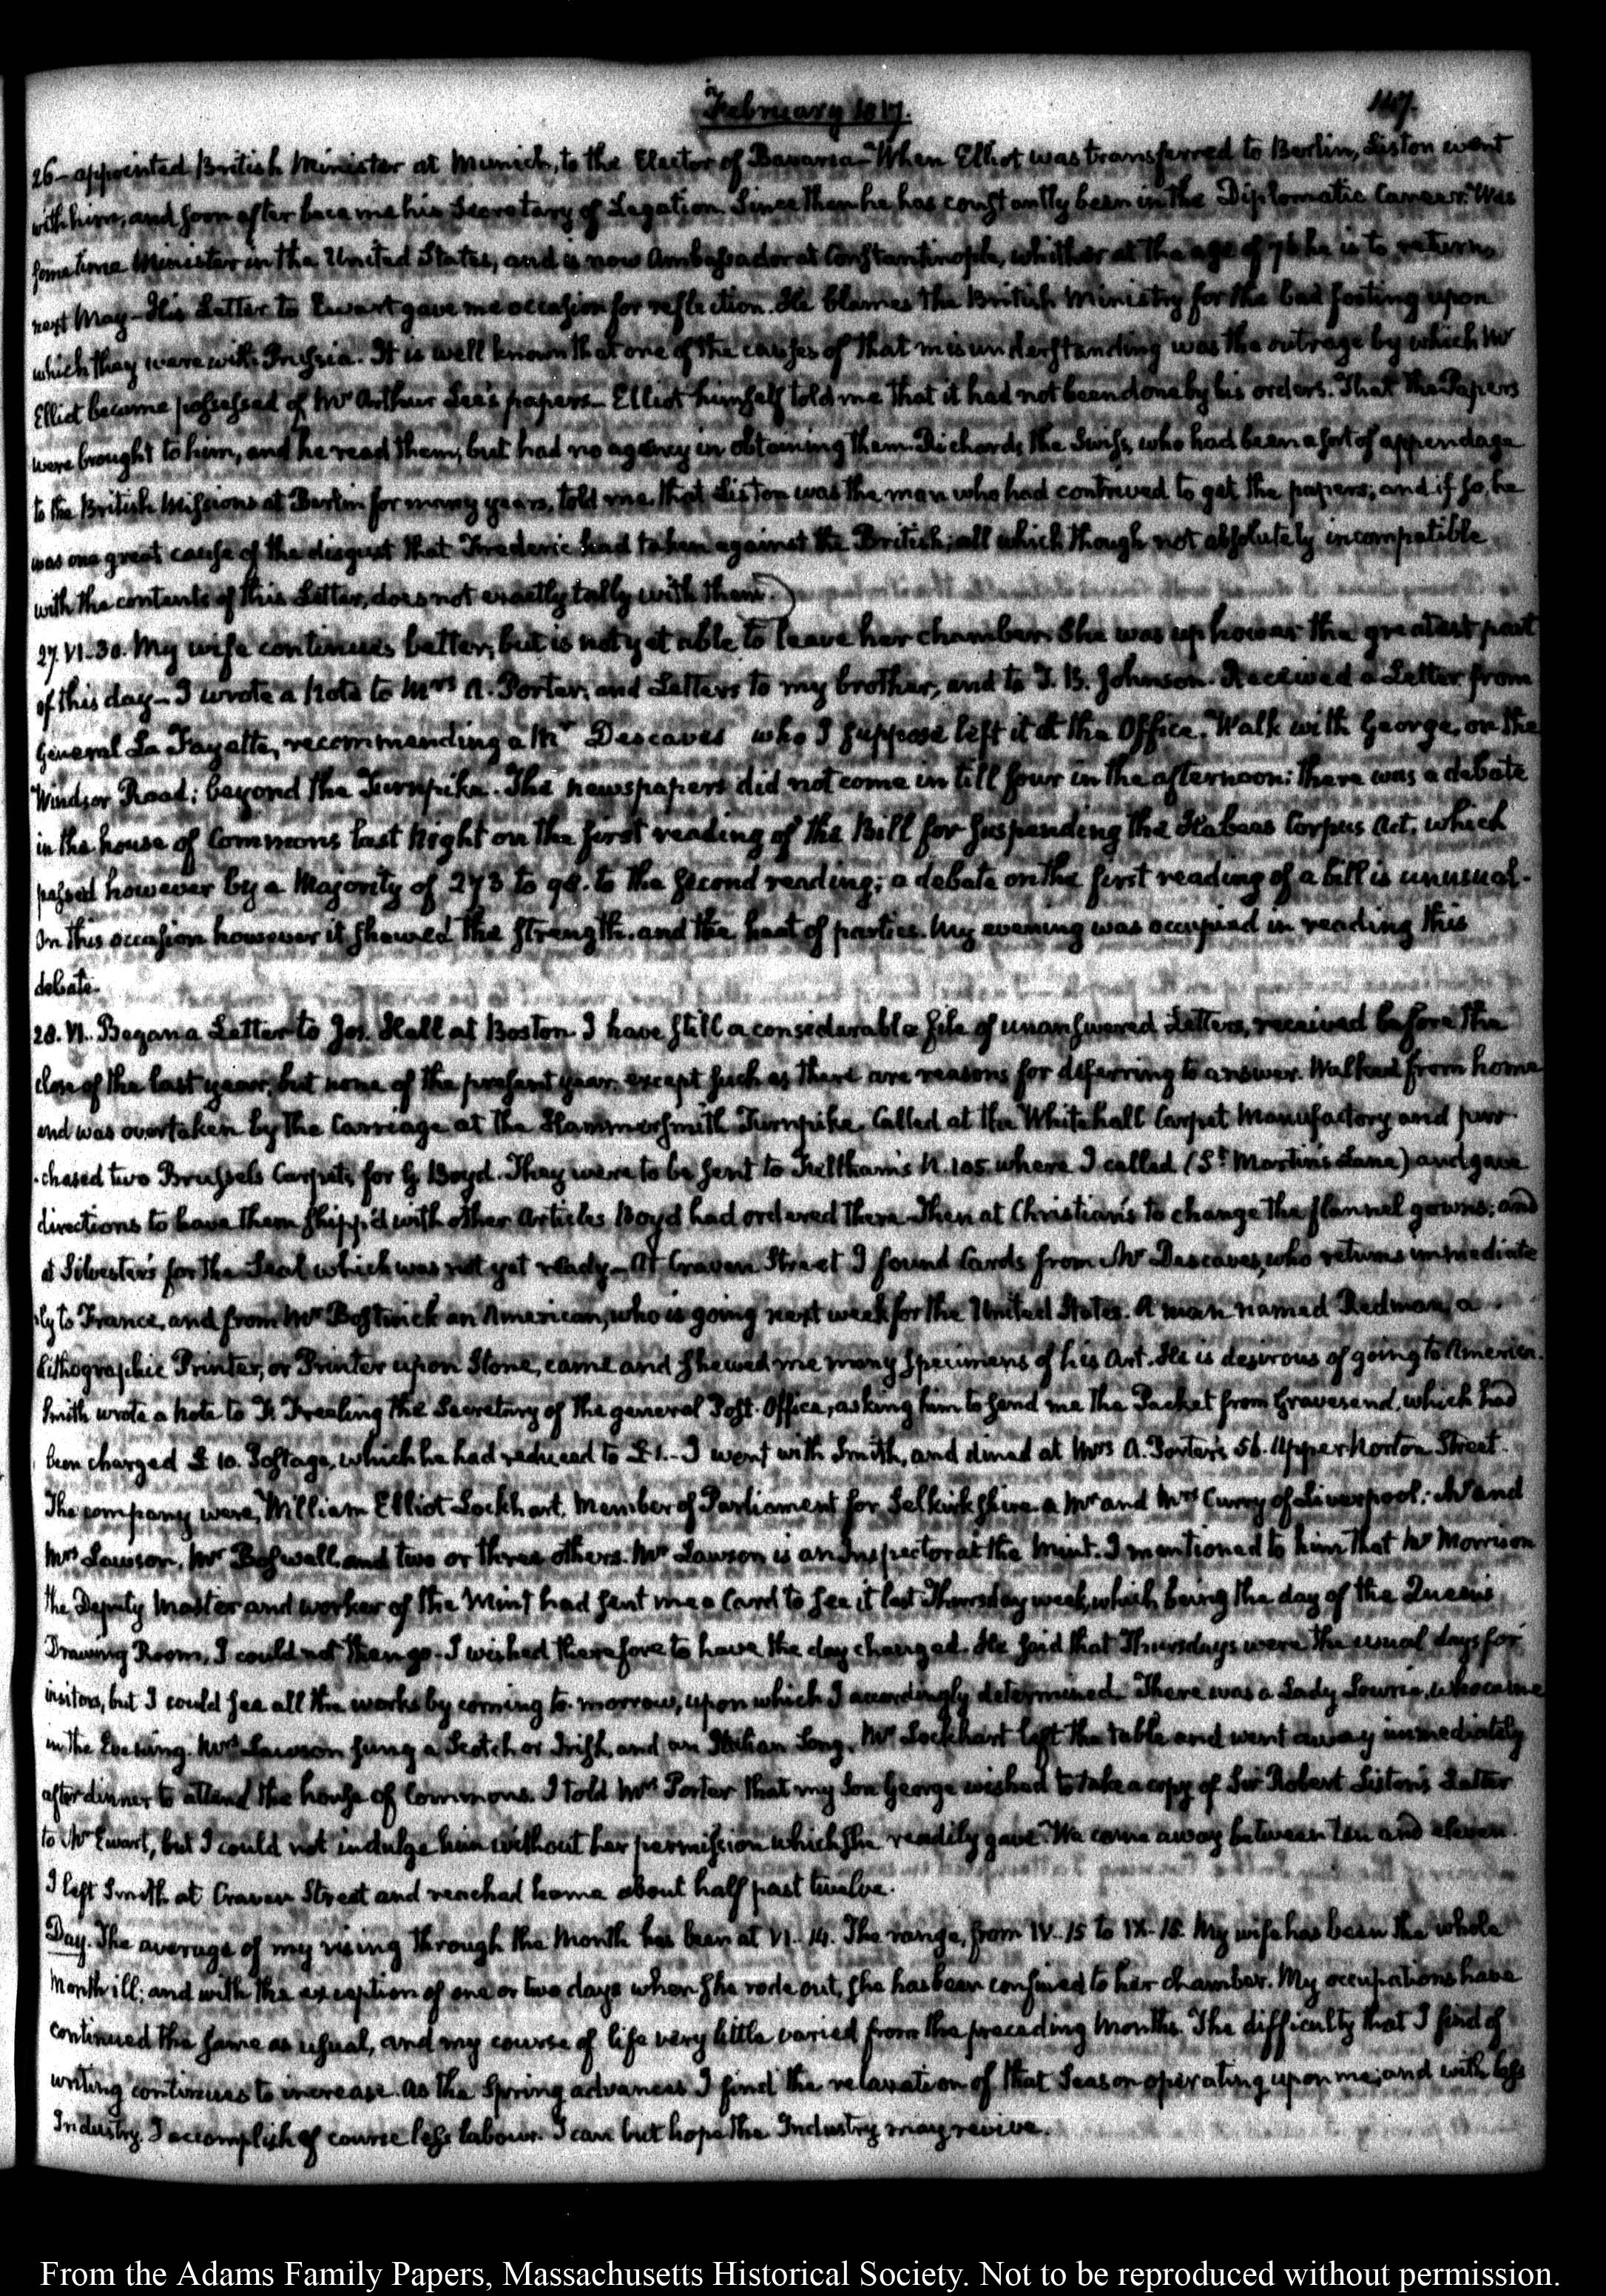 February 1817.
147.
26— appointed British Minister at Munich, to the Elector of Bavaria— When Elliot was transferred to Berlin, Liston went
with him, and soon after became his Secretary of Legation. Since then he has constantly been in the Diplomatic Career. Was
some time Minister in the United States, and is now Ambassador at Constantinople, whither at the age of 76 he is to return,
next May— His Letter to Ewart gave me occasion for reflection. He blames the British Ministry for the bad footing upon
which they were with Prussia. It is well known that one of the causes of that misunderstanding was the outrage by which Mr
Elliot became possessed of Mr Arthur Lee's papers— Elliot himself told me that it had not been done by his orders. That the Papers
were brought to him, and he read them, but had no agency in obtaining them. Richards, the Swiss, who had been a sort of appendage
to the British Missions at Berlin for many years, told me that Liston was the man who had contrived to get the papers; and if so, he
was one great cause of the disgust that Frederic had taken against the British; all which though not absolutely incompatible
with the contents of this Letter, does not exactly tally with them.
27. VI-30. My wife continues better; but is not yet able to leave her chamber. She was up however the greatest part
of this day— I wrote a Note to Mrs A. Porter; and Letters to my brother, and to T. B. Johnson. Received a Letter from
General La Fayette, recommending a Mr Descaves who I suppose left it at the Office. Walk with George, on the
Windsor Road; beyond the Turnpike. The newspapers did not come in till four in the afternoon: there was a debate
in the house of Commons last Night on the first reading of the Bill for suspending the Habeas Corpus Act, which
passed however by a Majority of 273 to 98. to the second reading; a debate on the first reading of a bill is unusual.
On this occasion however it shewed the strength and the heat of parties. My evening was occupied in reading this
debate.
28. VI. Began a Letter to Jos. Hall at Boston. I have still a considerable file of unanswered Letters, received before the
close of the last year, but none of the present year, except such as there are reasons for deferring to answer. Walked from home
and was overtaken by the Carriage at the Hammersmith Turnpike. Called at the Whitehall Carpet Manufactory and pur-
-chased two Brussels Carpets for G. Boyd. They were to be sent to Fulltham's N. 105 where I called (St. Martin's Lane) and gave
directions to have them shipp'd with other Articles Boyd had ordered there. Then at Christian's to change the flannel gowns; and
at Silvester's for the Seal which was not yet ready— At Craven Street I found Cards from Mr Descaves, who returns immediate
-ly to France, and from Mr Bostwick an American, who is going next week for the United States. A man named Redman, a
Lithographic Printer, or Printer upon Stone, came and shewed me many specimens of his Art. He is desirous of going to America.
Smith wrote a note to F. Freeling the Secretary of the general Post-Office, asking him to send me the Packet from Gravesend, which had
been charged £10. Postage, which he had reduced to £1.— I went with Smith, and dined at Mrs A. Porter's 56. Upper Norton Street.
The company were, William Elliot Lockhart, Member of Parliament for Selkirkshire, a Mr and Mrs Curry of Liverpool; Mr and
Mrs Lawson, Mr Boswall and two or three others. Mr Lawson is an Inspector at the Mint. I mentioned to him that Mr Morrison
the Deputy Master and worker of the Mint had sent me a Card to see it last Thursday week, which being the day of the Queen's
Drawing Room, I could not then go. I wished therefore to have the day changed. He said that Thursdays were the usual days for
visitors, but I could see all the works by coming to-morrow, upon which I accordingly determined. There was a Lady Lowrie, who came
in the Evening. Mrs Lawson sung a Scotch or Irish, and an Italian Song. Mr Lockhart left the table and went away immediately
after dinner to attend the house of Commons. I told Mrs Porter that my Son George wished to take a copy of Sir Robert Liston's Letter
to Mr Ewart, but I could not indulge him without her permission which she readily gave. We came away between ten and eleven.
I left Smith at Craven Street and reached home about half past twelve.
Day. The average of my rising through the Month has been at VI-14. The range, from IV-15 to IX-15. My wife has been the whole
Month ill; and with the exception of one or two days when she rode out, she has been confined to her chamber. My occupations have
continued the same as usual, and my course of life very little varied from the preceding Months. The difficulty that I find of
writing continues to increase. As the Spring advances I find the relaxation of that Season operating upon me; and with less
Industry I accomplish of course less labour. I can but hope the Industry may revive.
From the Adams Family Papers, Massachusetts Historical Society. Not to be reproduced without permission.